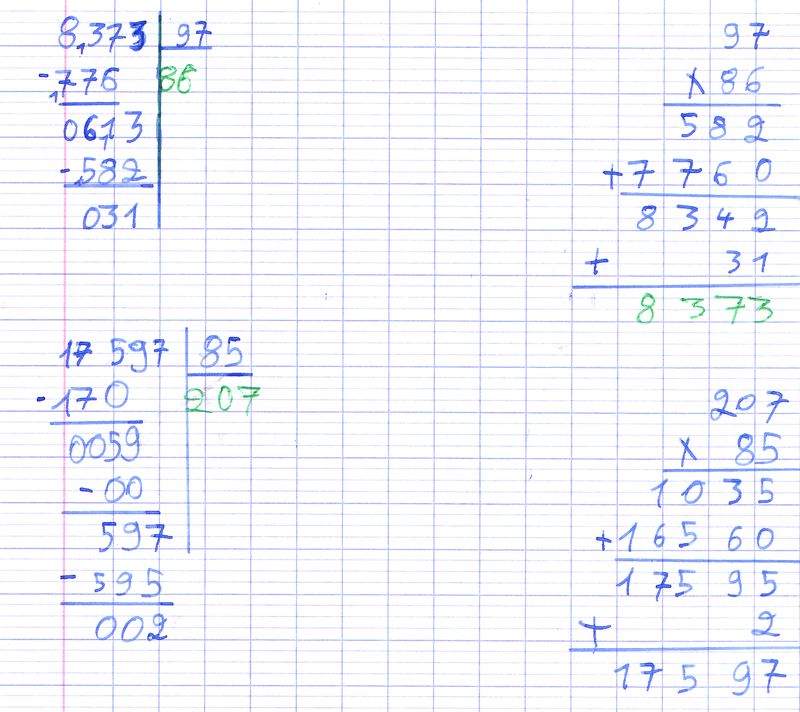 8,373 97
-776 86
0613
-582
031
97
x 86
582
+7760
8342
+ 31
8373
17 597 85
-170 207
0059
-00
597
-595
002
207
x 85
1035
+16560
17595
+ 2
17597